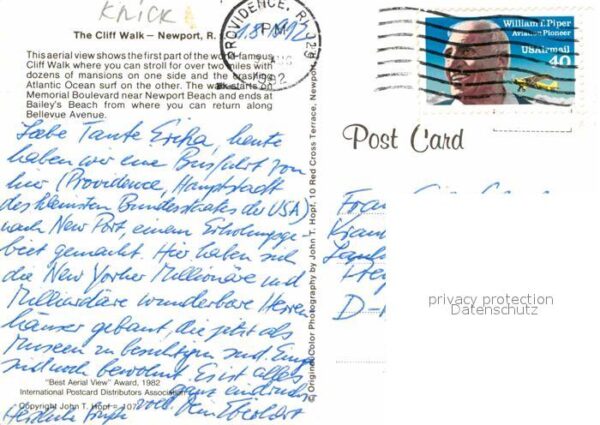 KNICK
The Cliff Walk – Newport, R.
This aerial view shows the first part of the world-famous
Cliff Walk where you can stroll for over two miles with
dozens of mansions on one side and the crashing
Atlantic Ocean surf on the other. The walk starts on
Memorial Boulevard near Newport Beach and ends at
Bailey's Beach from where you can return along
Bellevue Avenue.
1.8.1992
Liebe Tante Erika, heute
haben wir eine Busfahrt von
hier (Providence, Hauptstadt
des kleinsten Bundesstaates der USA)
nach New Port, einem Erholungsge-
biet gemacht. Hier haben sich
die New Yorker Millionäre und
Milliardäre wunderbare Herren
häuser gebaut, die jetzt als
Museen zu besichtigen sind. Einige
sind noch bewohnt. Es ist alles
ganz eindrucks
voll. Dein Eberhart
Herzliche Grüße
"Best Aerial View" Award, 1982
International Postcard Distributors Association
Copyright John T. Hopf – 107
© Original Color Photography by John T. Hopf, 10 Red Cross Terrace, Newport
PROVIDENCE, RI 029
PM
AUG
1992
William T. Piper
Aviation Pioneer
USAirmail
40
Post Card
Frau
D-
privacy protection
Datenschutz